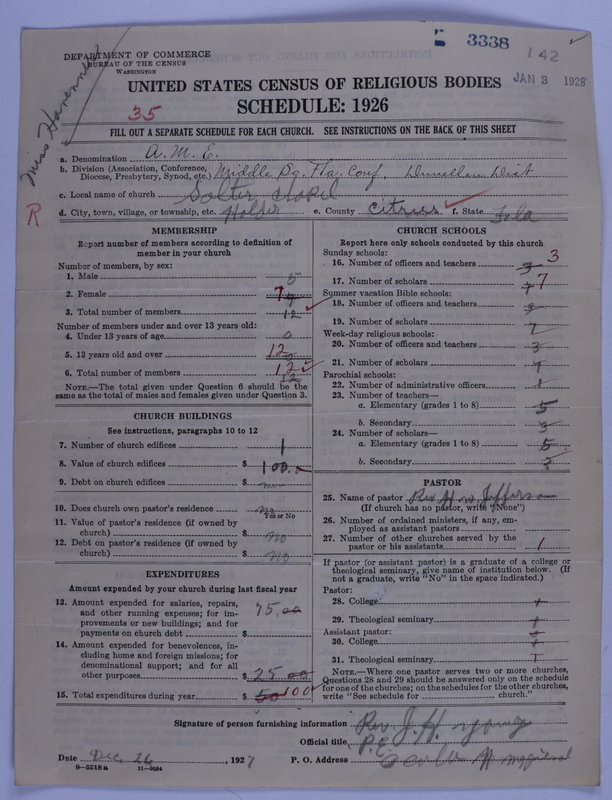 3338
142
JAN 3 1928
DEPARTMENT OF COMMERCE
BUREAU OF THE CENSUS
WASHINGTON
UNITED STATES CENSUS OF RELIGIOUS BODIES
SCHEDULE: 1926
35
FILL OUT A SEPARATE SCHEDULE FOR EACH CHURCH. SEE INSTRUCTIONS ON THE BACK OF THIS SHEET
Miss
R
a. Denomination A.M.E.
b. Division (Association, Conference, Diocese, Presbytery, Synod, etc.) Middle Dg. Fla. Conf. Dunellon Dist
c. Local name of church Salter chapel
d. City, town, village, or township, etc. Holder e. County Citruss f. State Fla
MEMBERSHIP
Report number of members according to definition of
member in your church
Number of members, by sex:
1. Male 5
2. Female 7
3. Total number of members 12
Number of members under and over 13 years old:
4. Under 13 years of age 0
5. 13 years old and over 12
6. Total number of members 12
NOTE.—The total given under Question 6 should be the
same as the total of males and females given under Question 3.
CHURCH BUILDINGS
See instructions, paragraphs 10 to 12
7. Number of church edifices 1
8. Value of church edifices $ 100.
9. Debt on church edifices $
10. Does church own pastor's residence no
Yes or No
11. Value of pastor's residence (if owned by
church) $ no
12. Debt on pastor's residence (if owned by
church) $ no
EXPENDITURES
Amount expended by your church during last fiscal year
13. Amount expended for salaries, repairs,
and other running expenses; for im-
provements or new buildings; and for
payments on church debt $ 75.00
14. Amount expended for benevolences, in-
cluding home and foreign missions; for
denominational support; and for all
other purposes $ 25 00
15. Total expenditures during year $ 50 100
CHURCH SCHOOLS
Report here only schools conducted by this church
Sunday schools:
16. Number of officers and teachers 3
17. Number of scholars 7
Summer vacation Bible schools:
18. Number of officers and teachers
19. Number of scholars
Week-day religious schools:
20. Number of officers and teachers 3
21. Number of scholars
Parochial schools:
22. Number of administrative officers 1
23. Number of teachers—
a. Elementary (grades 1 to 8) 5
b. Secondary 3
24. Number of scholars—
a. Elementary (grades 1 to 8) 5
b. Secondary
PASTOR
25. Name of pastor Rev H. W. Jefferson
(If church has no pastor, write "None")
26. Number of ordained ministers, if any, em-
ployed as assistant pastors
27. Number of other churches served by the
pastor or his assistants 1
If pastor (or assistant pastor) is a graduate of a college or
theological seminary, give name of institution below. (If
not a graduate, write "No" in the space indicated.)
Pastor:
28. College
29. Theological seminary
Assistant pastor:
30. College
31. Theological seminary
NOTE.—Where one pastor serves two or more churches,
Questions 28 and 29 should be answered only on the schedule
for one of the churches; on the schedules for the other churches,
write "See schedule for church."
Signature of person furnishing information Rev. J. H.
Official title P.E.
Date Dec. 26, 1927 P. O. Address
8-5518a 11-9034